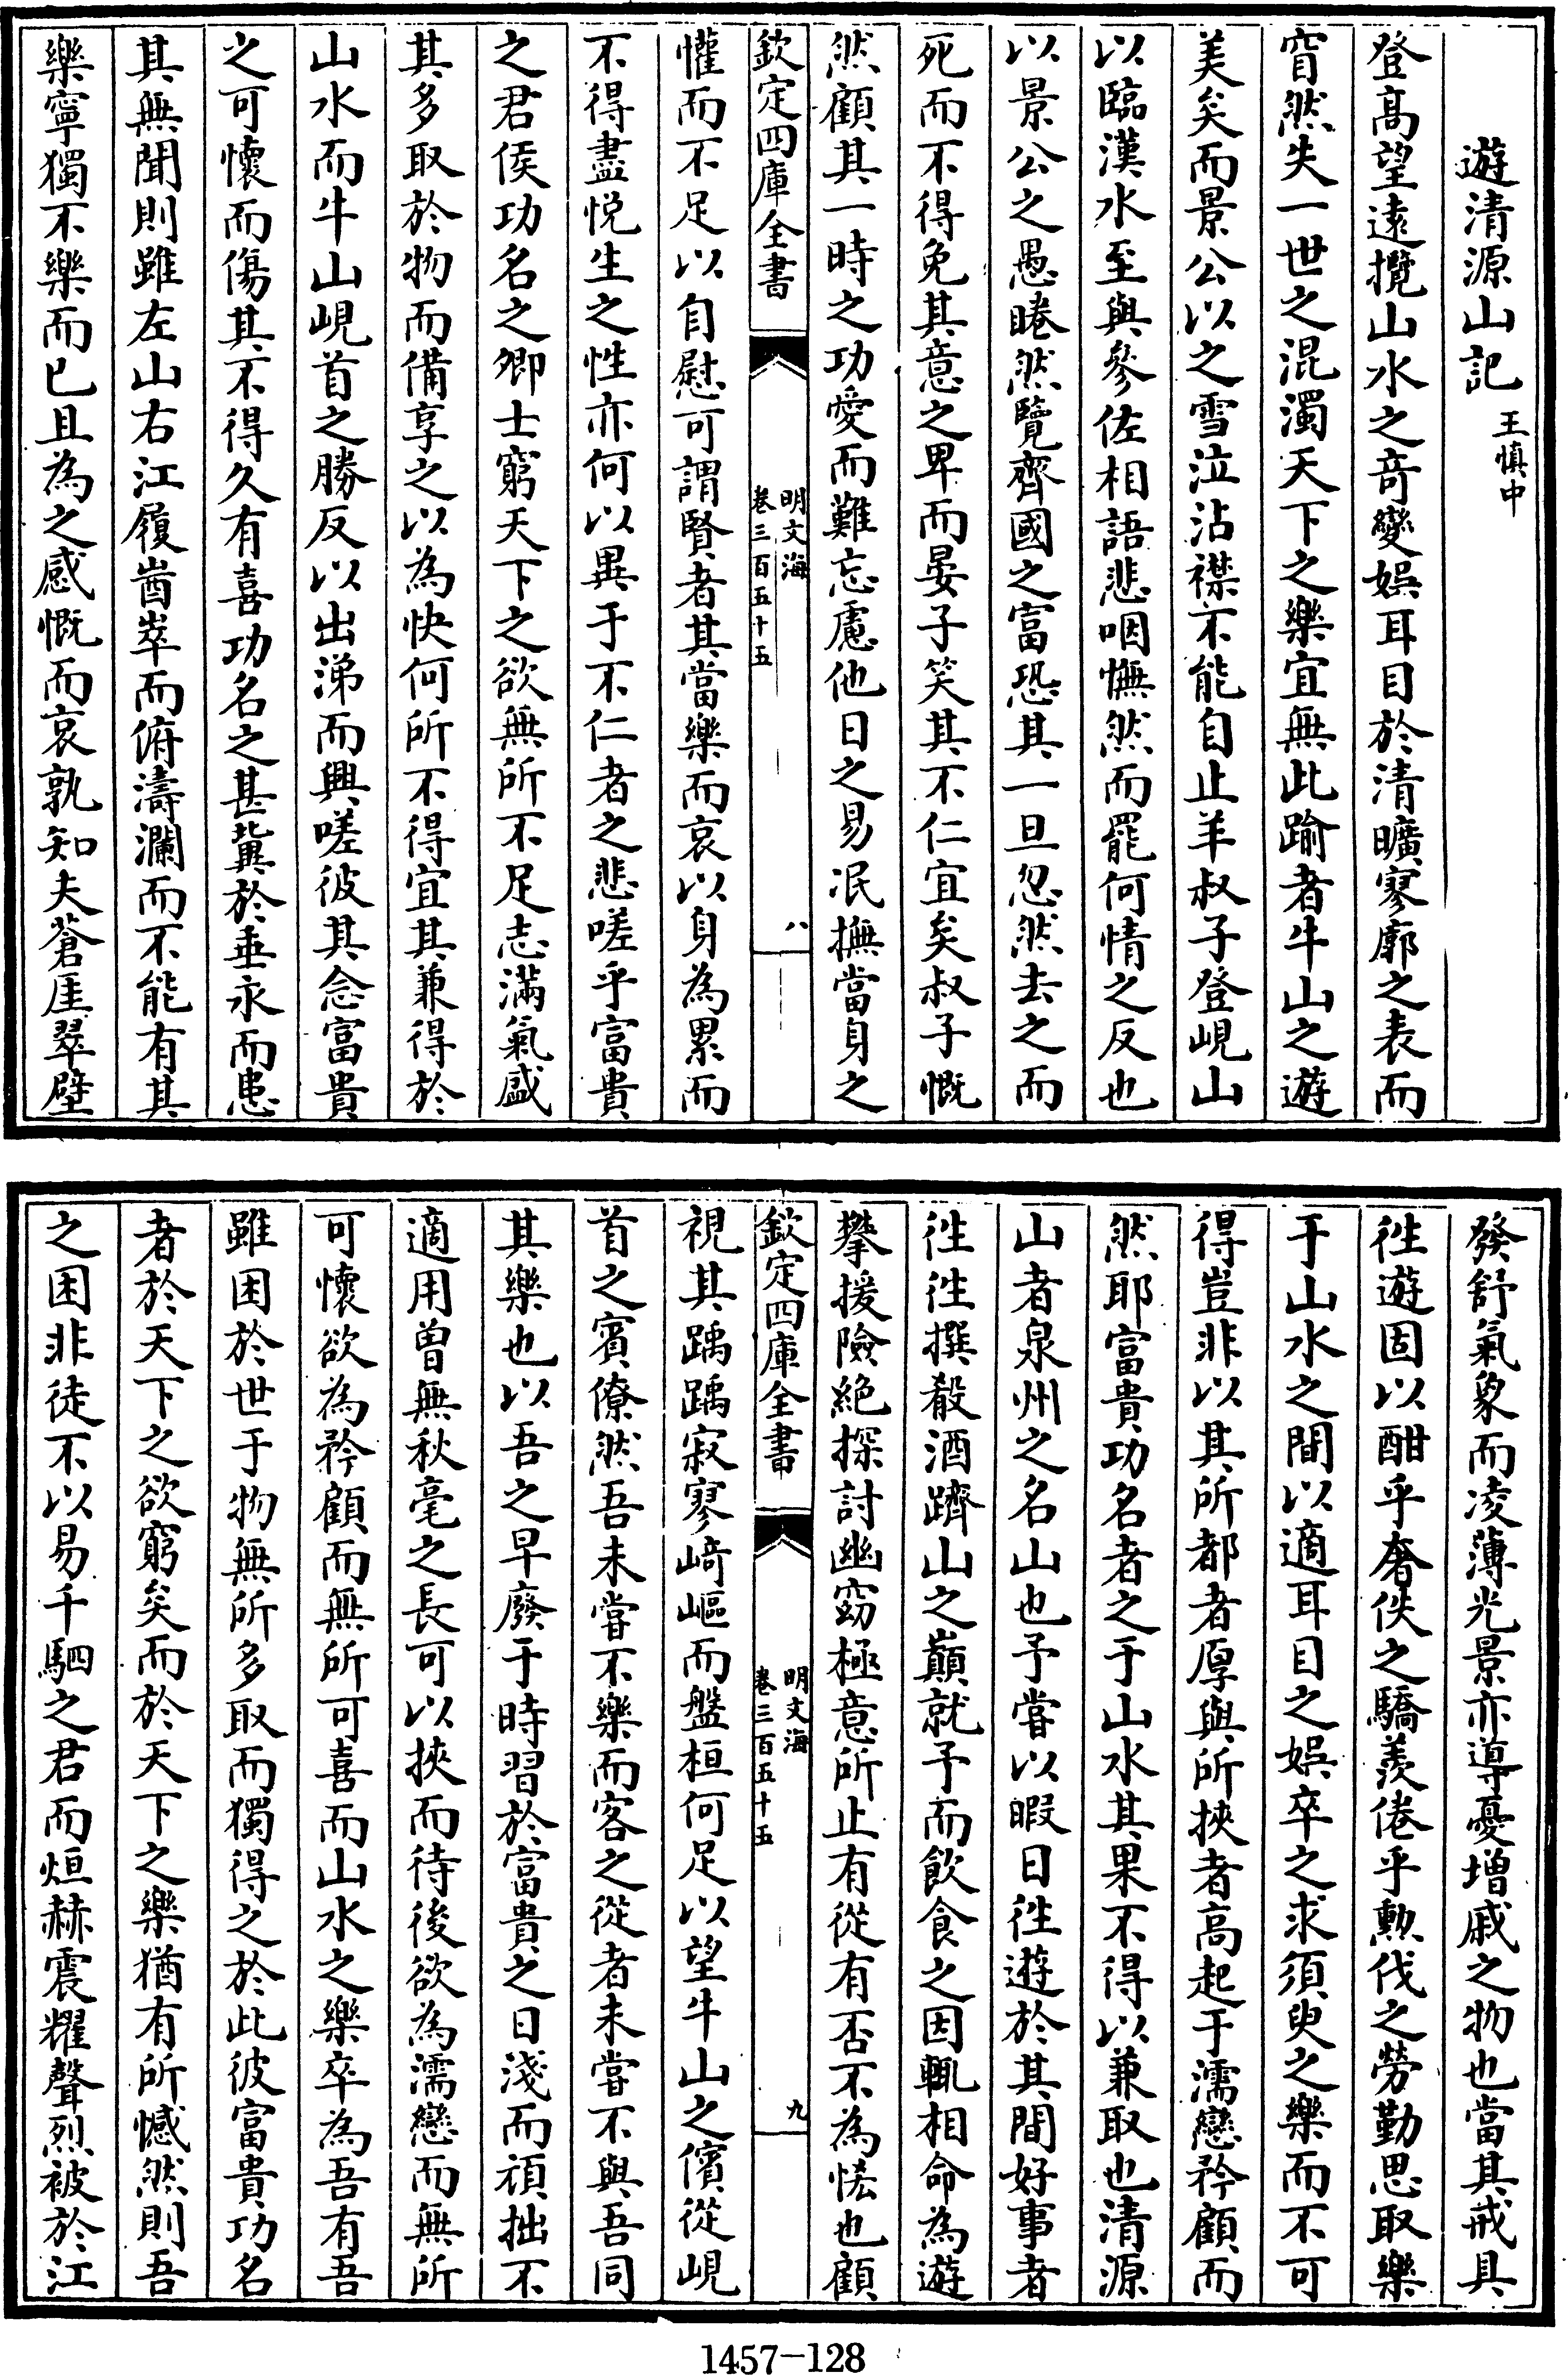 遊清源山記 王慎中
登高望遠攬山水之竒變娯耳目於清曠寥廓之表而
窅然失一世之混濁天下之樂宜無此踰者牛山之遊
美矣而景公以之雪泣沾襟不能自止羊叔子登峴山
以臨漢水至與參佐相語悲咽憮然而罷何情之反也
以景公之愚睠然覽齊國之富恐其一旦忽然去之而
死而不得免其意之卑而晏子笑其不仁宜矣叔子慨
然顧其一時之功愛而難忘慮他日之易泯撫當身之
欽定四庫全書 明文海 卷三百五十五 八
懽而不足以自慰可謂賢者其當樂而哀以身為累而
不得盡悦生之性亦何以異于不仁者之悲嗟乎富貴
之君侯功名之卿士窮天下之欲無所不足志滿氣盛
其多取於物而備享之以為快何所不得宜其兼得於
山水而牛山峴首之勝反以出涕而興嗟彼其念富貴
之可懷而傷其不得久有喜功名之甚冀於垂永而患
其無聞則雖左山右江履崷崒而俯濤瀾而不能有其
樂寧獨不樂而已且為之感慨而哀孰知夫蒼厓翠壁
發舒氣象而凌薄光景亦導憂增戚之物也當其戒具
徃遊固以酣乎奢佚之驕羡倦乎勲伐之勞勤思取樂
于山水之間以適耳目之娯卒之求須臾之樂而不可
得豈非以其所都者厚與所挾者高起于濡戀矜顧而
然耶富貴功名者之于山水其果不得以兼取也清源
山者泉州之名山也予嘗以暇日徃遊於其間好事者
徃徃撰殽酒躋山之巔就予而飲食之因輒相命為遊
攀援險絶探討幽窈極意所止有從有否不為恡也顧
欽定四庫全書 明文海 卷三百五十五 九
視其踽踽寂寥﨑嶇而盤桓何足以望牛山之儐從峴
首之賓僚然吾未嘗不樂而客之從者未嘗不與吾同
其樂也以吾之早廢于時習於富貴之日淺而頑拙不
適用曾無秋毫之長可以挾而待後欲為濡戀而無所
可懷欲為矜顧而無所可喜而山水之樂卒為吾有吾
雖困於世于物無所多取而獨得之於此彼富貴功名
者於天下之欲窮矣而於天下之樂猶有所憾然則吾
之困非徒不以易千駟之君而烜赫震耀聲烈被於江
1457-128